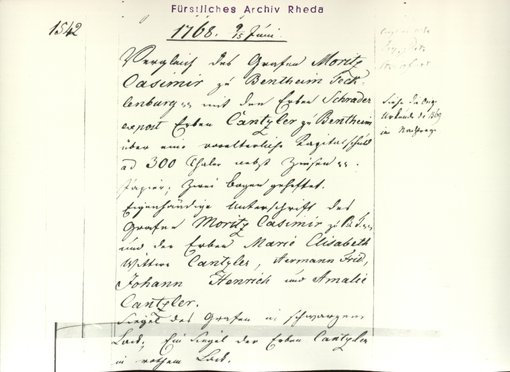 Fürstliches Archiv Rheda
1542
1768. 9/15 Juni.
Vergleich des Grafen Moritz
Casimir zu Bentheim Teck-
lenburg mit den Erben Schrader
Erben Cantzler zu Bentheim
über eine voralterliche Kapitalschuld
ad 300 Thaler nebst Zinsen
Papier; zwei Bogen geheftet.
Eigenhändige Unterschrift des
Grafen Moritz Casimir zu
und der Erben Marie Elisabeth
Wittwe Cantzler, Hermann Frid,
Johann Henrich und Amalie
Cantzler.
Siegel des Grafen in schwarzem
Lack. Ein Siegel der Erben Cantzler
in rothem Lack.
Siehe die
Urkunde
im Nachtrag